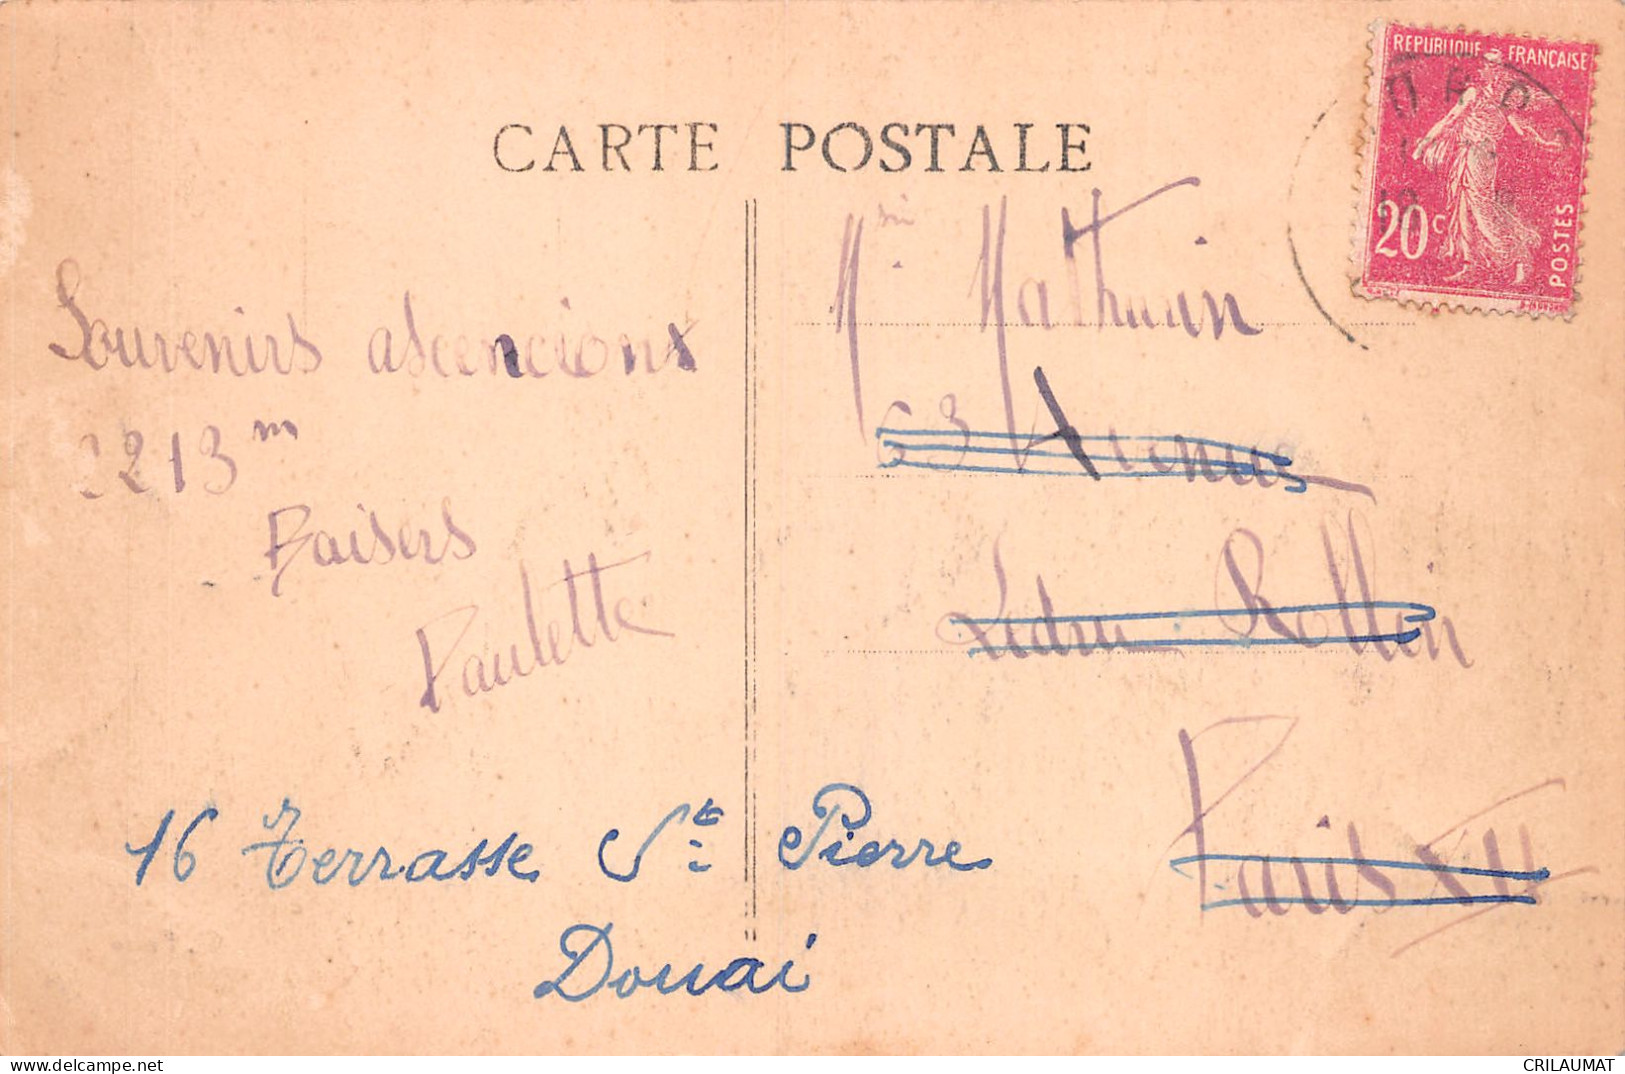 CARTE POSTALE
REPUBLIQUE FRANÇAISE
20c
POSTES
Souvenirs ascencionx
2213 m
Baisers
Paulette
Mathurin
63 Avenue
Ledru-Rollin
Paris XII
16 Terrasse St. Pierre
Douai
CRILAUMAT